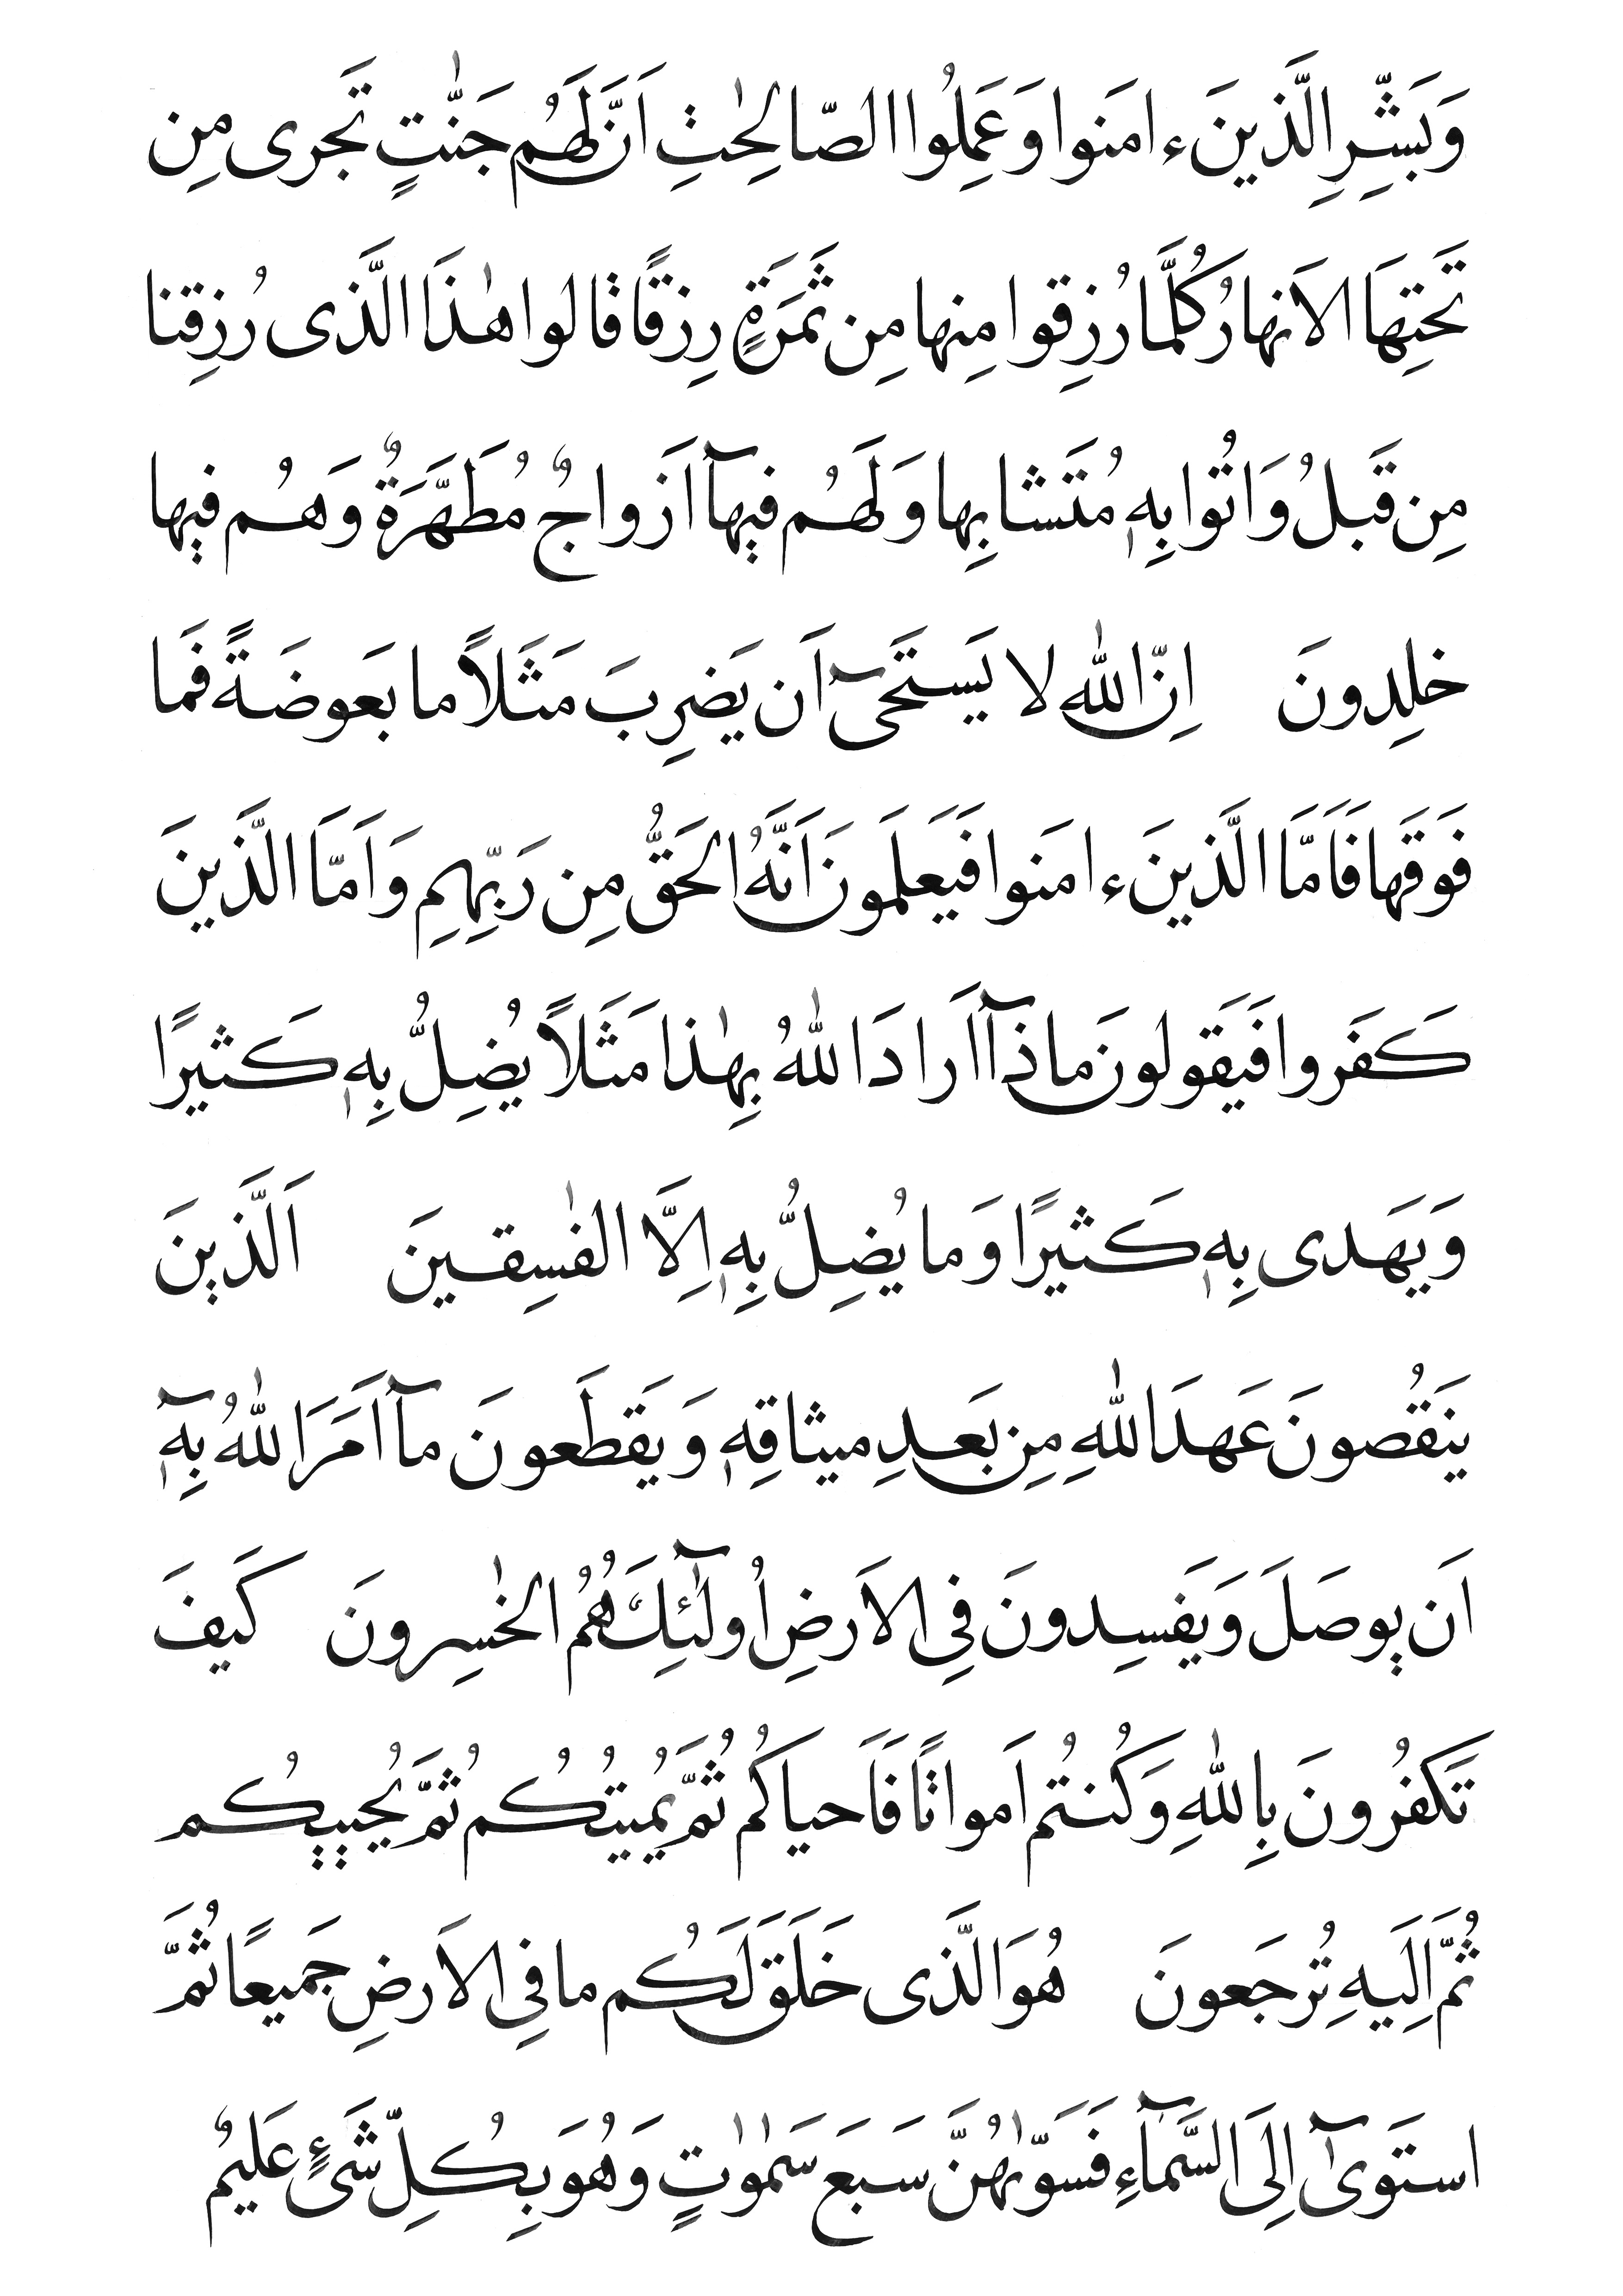 وَبَشِّرِ الَّذينَ ءامَنوا وَعَمِلُوا الصّالِحٰتِ اَنَّ لَهُم جَنّٰتٍ تَجرى مِن
تَحتِهَا الاَنهارُ كُلَّما رُزِقوا مِنها مِن ثَمَرَةٍ رِزقًا قالوا هٰذَا الَّذى رُزِقنا
مِن قَبلُ وَاُتوا بِهٖ مُتَشابِها وَلَهُم فيهآ اَزواجٌ مُطَهَّرَةٌ وَهُم فيها
خلِدونَ اِنَّ اللّٰه لا يَستَحىٓ اَن يَضرِبَ مَثَلاً ما بَعوضَةً فَما
فَوقَها فَاَمَّا الَّذينَ ءامَنوا فَيَعلَمونَ اَنَّهُ الحَقُّ مِن رَبِّهِم وَاَمَّا الَّذينَ
كَفَروا فَيَقولونَ ماذآ اَرادَ اللّٰهُ بِهٰذا مَثَلاً يُضِلُّ بِهٖ كَثيرًا
وَيَهدى بِهٖ كَثيرًا وَما يُضِلُّ بِهٖ اِلَّا الفٰسِقينَ اَلَّذينَ
يَنقُصونَ عَهدَ اللّٰهِ مِن بَعدِ ميثاقِهٖ وَيَقطَعونَ مآ اَمَرَ اللّٰهُ بِهٖٓ
اَن يوصَلَ وَيَفسِدونَ فِى الاَرضِ اُولٰٓئِكَ هُمُ الخٰسِرونَ كَيفَ
تَكفُرونَ بِاللّٰهِ وَكُنتُم اَمواتًا فَاَحياكُم ثُمَّ يُميتُكُم ثُمَّ يُحييكُم
ثُمَّ اِلَيهِ تُرجَعونَ هُوَ الَّذى خَلَقَ لَكُم ما فِى الاَرضِ جَميعًا ثُمَّ
استَوىٰٓ اِلَى السَّمآءِ فَسَوّٰىهُنَّ سَبعَ سَمٰوٰتٍ وَهُوَ بِكُلِّ شَىءٍ عَليمٌ